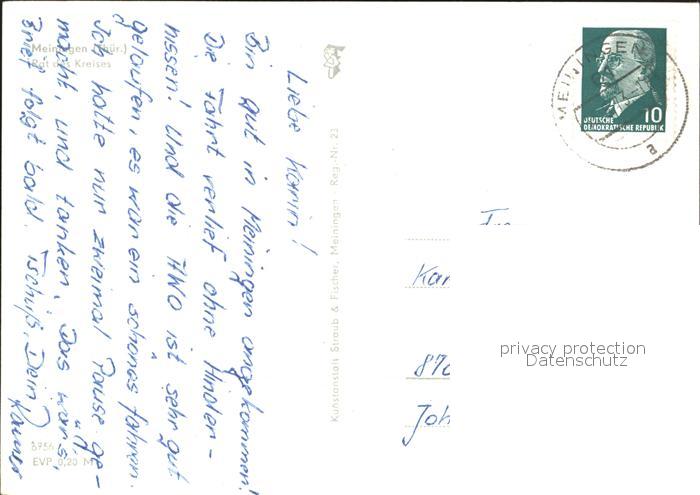 Liebe Karin!
Bin gut in Meiningen angekommen!
Die Fahrt verlief ohne Hinder-
nissen! Und die AWO ist sehr gut
gelaufen, es war ein schönes fahren.
Ich hatte nur zweimal Pause ge-
macht, und tanken. Das wär's,
Brief folgt bald. Tschüß, Dein
Rainer
Meiningen (Thür.)
Rat des Kreises
EVP 0,20 M
Kunstanstalt Straub & Fischer, Meiningen Reg.-Nr. 23
MEININGEN
a
10
DEUTSCHE
DEMOKRATISCHE REPUBLIK
Kar
87
Joh
privacy protection
Datenschutz